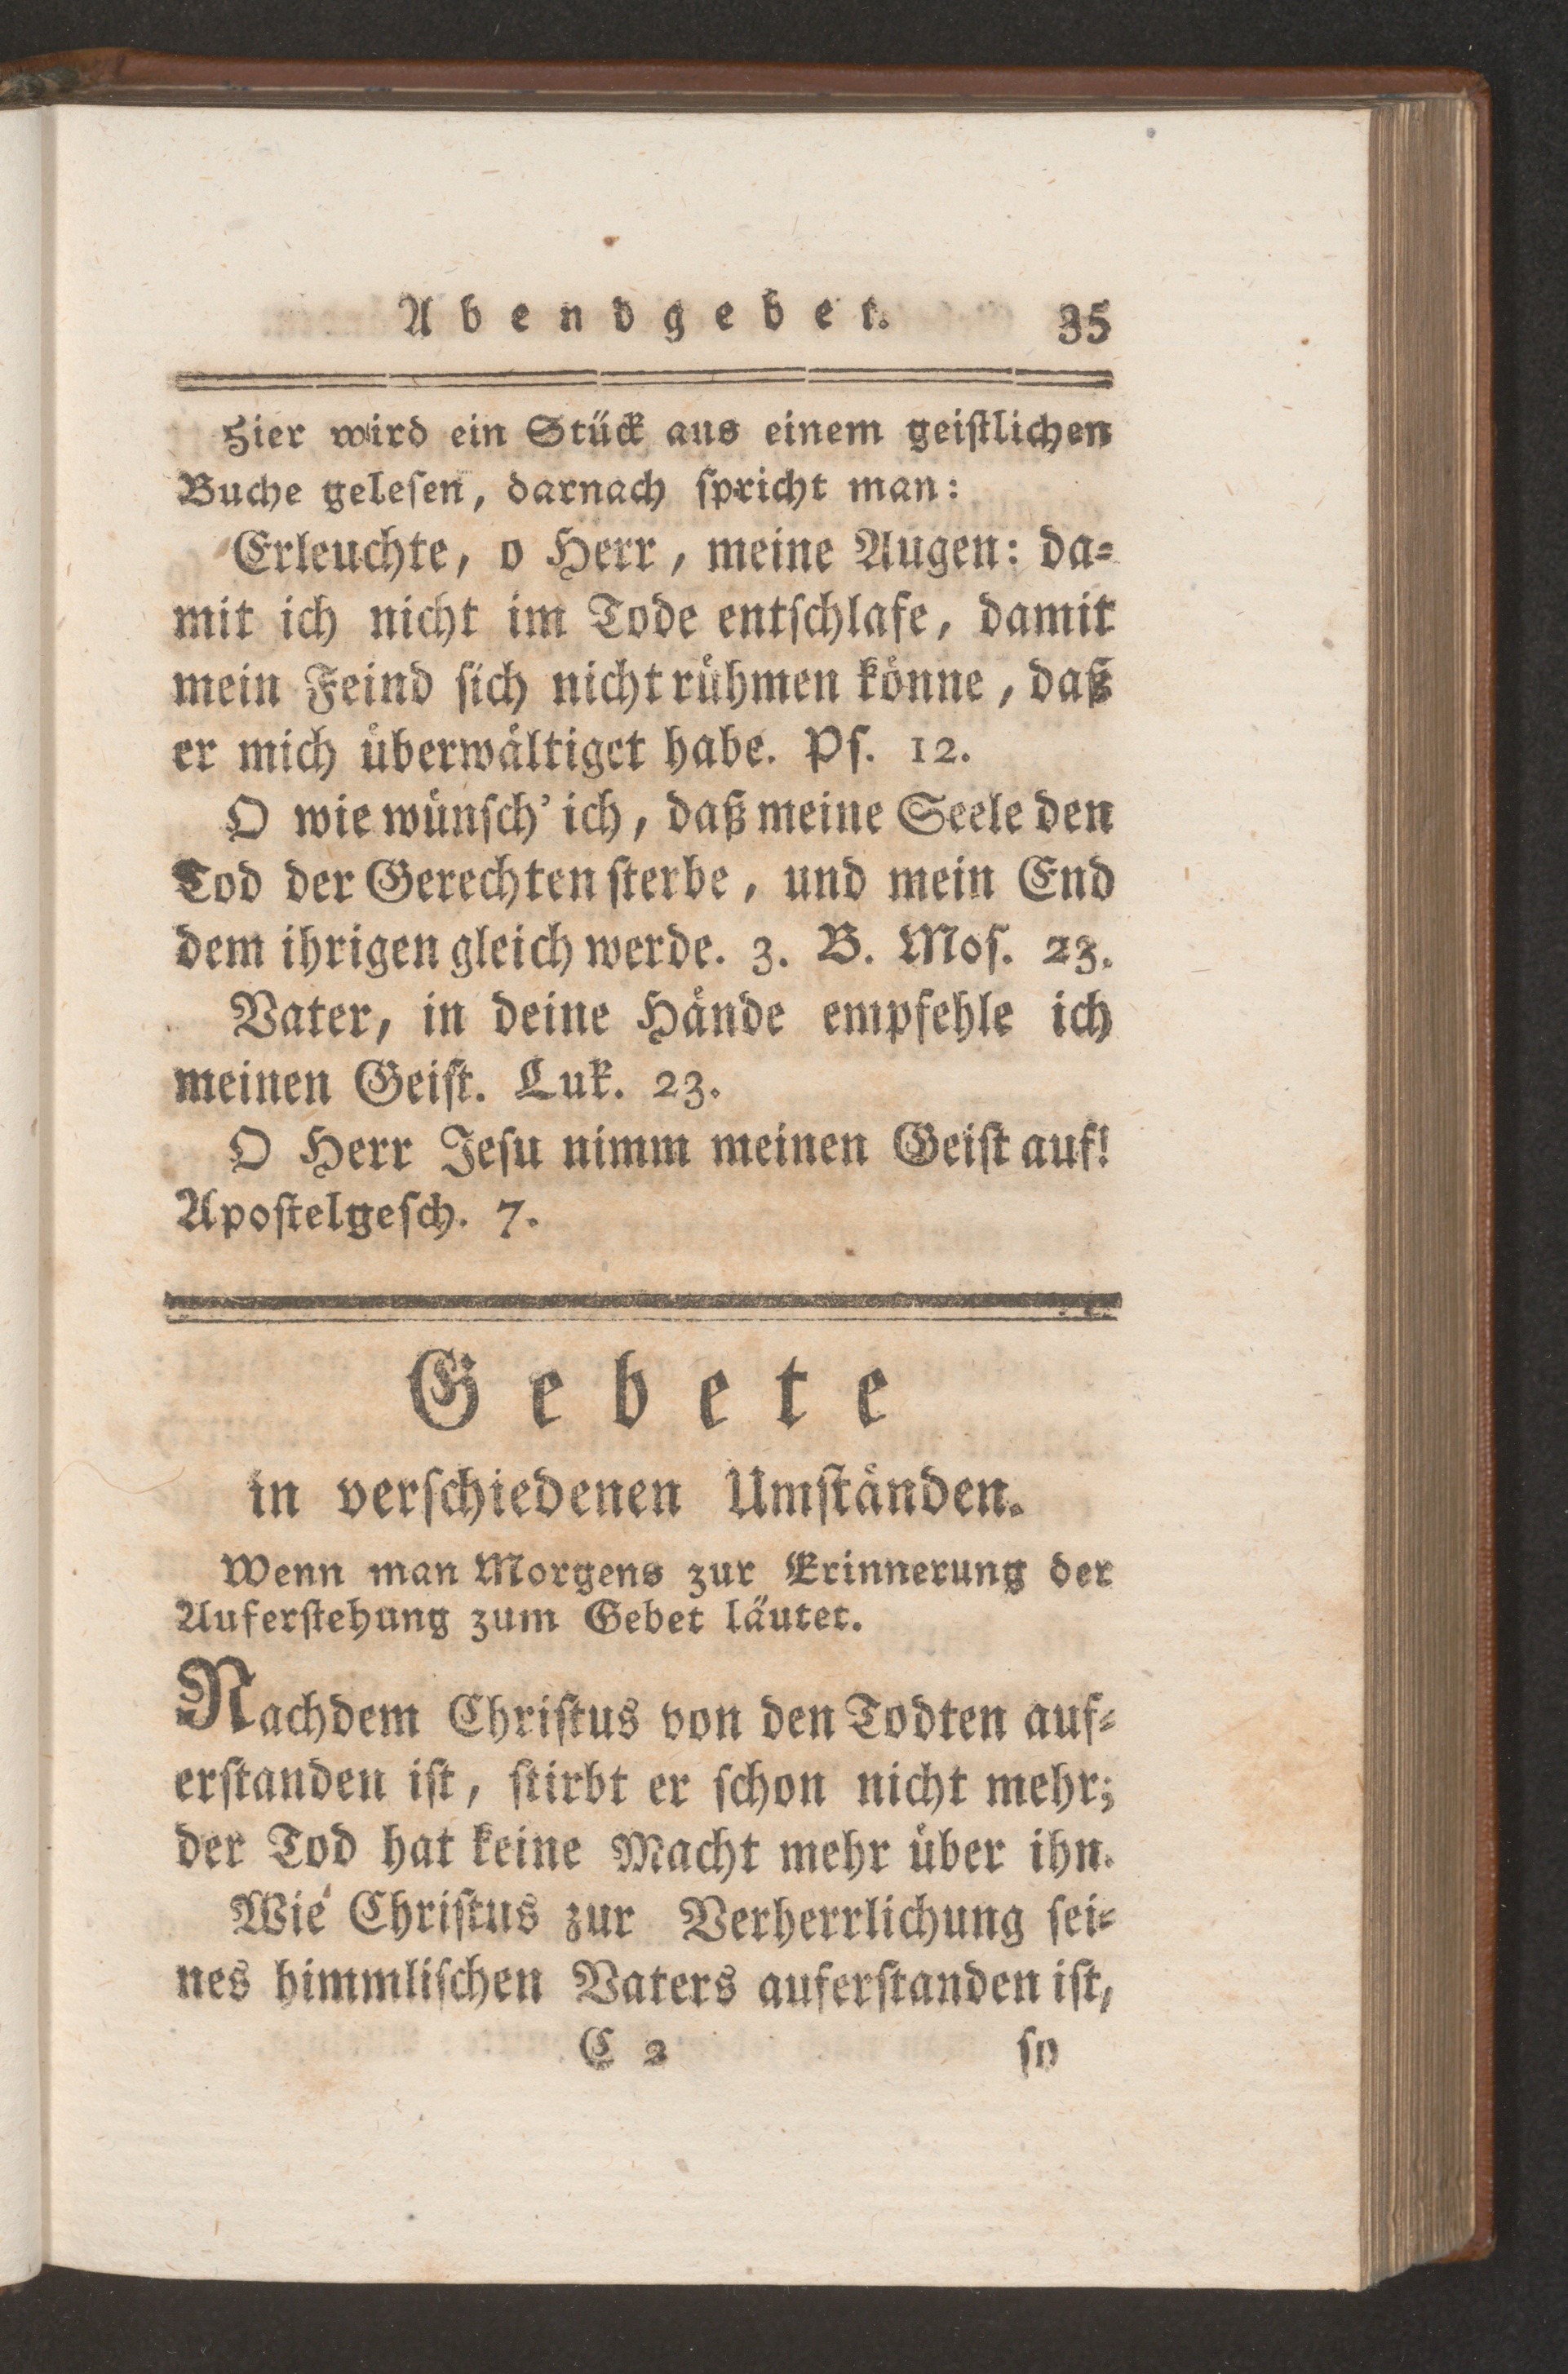 Abendgebet. 35
Hier wird ein Stück aus einem geiſtlichen
Buche geleſen, darnach ſpricht man:
Erleuchte, o Herr, meine Augen: da⸗
mit ich nicht im Tode entſchlafe, damit
mein Feind ſich nicht ruͤhmen koͤnne, daß
er mich uͤberwaͤltiget habe. Pſ. 12.
O wie wuͤnſch' ich, daß meine Seele den
Tod der Gerechten ſterbe, und mein End
dem ihrigen gleich werde. 3. B. Moſ. 23.
Vater, in deine Haͤnde empfehle ich
meinen Geiſt. Luk. 23.
O Herr Jeſu nimm meinen Geiſt auf!
Apoſtelgeſch. 7.
Gebete
in verſchiedenen Umſtaͤnden.
Wenn man Morgens zur Erinnerung der
Auferſtehung zum Gebet läutet.
Nachdem Chriſtus von den Todten auf⸗
erſtanden iſt, ſtirbt er ſchon nicht mehr;
der Tod hat keine Macht mehr uͤber ihn.
Wie Chriſtus zur Verherrlichung ſei⸗
nes himmliſchen Vaters auferſtanden iſt,
C 2 ſo